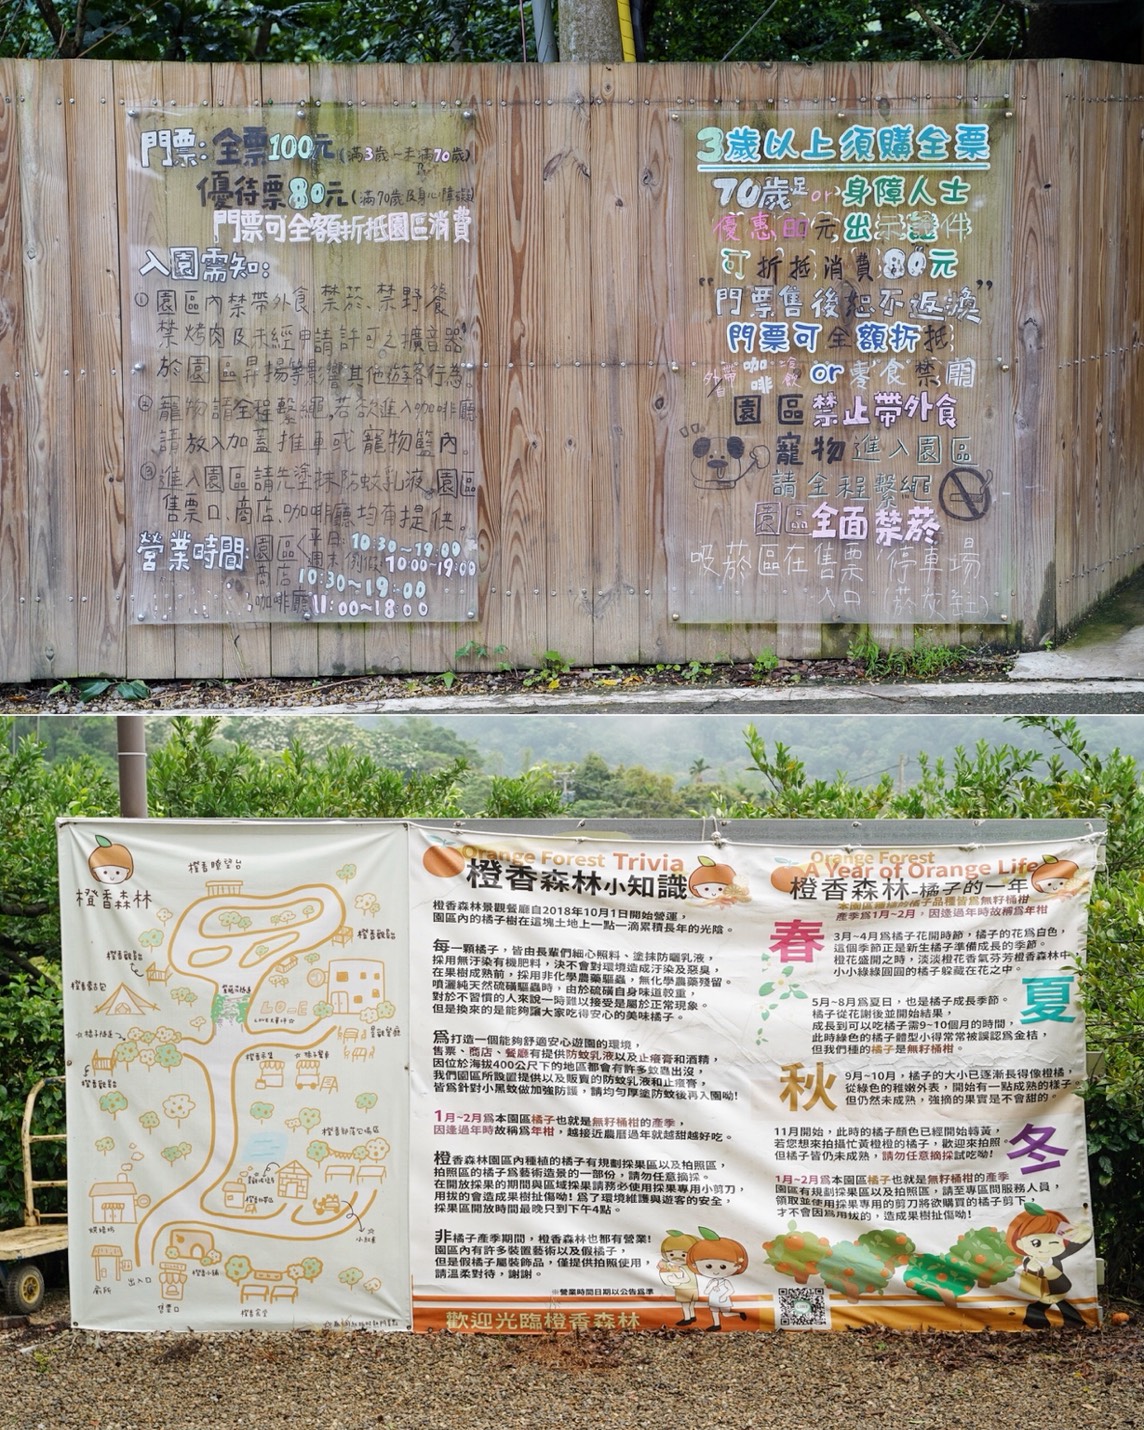 門票:全票100元(滿3歲－未滿70歲)
優待票80元(滿70歲及身心障礙)
門票可全額折抵園區消費
入園需知:
①園區內禁帶外食、禁菸、禁野餐
禁烤肉及未經申請許可之擴音器
於園區昇揚等影響其他遊客行為。
②寵物請全程繫繩,若欲進入咖啡廳
請放入加蓋推車或寵物籃內。
③進入園區請先塗抹防蚊乳液,園區
售票口、商店、咖啡廳均有提供。
營業時間:園區<平日:10:30~19:00
週末例假10:00~19:00
商店10:30~19:00
咖啡廳11:00~18:00
3歲以上須購全票
70歲足or身障人士
優惠80元出示證件
可折抵消費80元
"門票售後恕不返換"
門票可全額折抵
外帶咖啡冷飲or零食禁開
園區禁止帶外食
寵物進入園區
請全程繫繩
園區全面禁菸
吸菸區在售票/停車場
入口
橙香森林
橙香瞭望台
橙香觀景
景觀餐廳
橙香小舖
出入口
售票口
廁所
小和車
Orange Forest Trivia
橙香森林小知識
橙香森林景觀餐廳自2018年10月1日開始營運,
園區內的橘子樹在這塊土地上一點一滴累積長年的光陰。
每一顆橘子,皆由長輩們細心照料、塗抹防曬乳液,
採用無汙染有機肥料,決不會對環境造成汙染及惡臭,
在果樹成熟前,採用非化學農藥驅蟲,無化學農藥殘留。
噴灑純天然硫磺驅蟲時,由於硫磺自身味道較重,
對於不習慣的人來說一時難以接受是屬於正常現象。
但是換來的是能夠讓大家吃得安心的美味橘子。
為打造一個能夠舒適安心遊園的環境,
售票、商店、餐廳有提供防蚊乳液以及止癢膏和酒精,
因位於海拔400公尺下的地區都會有許多蚊蟲出沒,
我們園區所設置提供以及販賣的防蚊乳液和止癢膏,
皆為針對小黑蚊做加強防護,請均勻厚塗防蚊後再入園呦!
1月~2月為本園區橘子也就是無籽桶柑的產季,
因逢過年時故稱為年柑,越接近農曆過年就越甜越好吃。
橙香森林園區內種植的橘子有規劃採果區以及拍照區,
拍照區的橘子為藝術造景的一部份,請勿任意摘採。
在開放採果的期間與區域採果請務必使用採果專用小剪刀,
用拔的會造成果樹扯傷呦!為了環境維護與遊客的安全,
採果區開放時間最晚只到下午4點。
非橘子產季期間,橙香森林也都有營業!
園區內有許多裝置藝術以及假橘子,
但是假橘子屬裝飾品,僅提供拍照使用,
請溫柔對待,謝謝。
※營業時間日期以公告為準
歡迎光臨橙香森林
Orange Forest
A Year of Orange Life
橙香森林-橘子的一年
本園區種植的橘子品種皆為無籽桶柑
產季為1月~2月,因逢過年時故稱為年柑
春
3月~4月為橘子花開時節,橘子的花為白色,
這個季節正是新生橘子準備成長的季節。
橙花盛開之時,淡淡橙花香氣芬芳橙香森林中
小小綠綠圓圓的橘子躲藏在花之中。
夏
5月~8月為夏日,也是橘子成長季節。
橘子從花謝後並開始結果,
成長到可以吃橘子需9~10個月的時間,
此時綠色的橘子體型小得常常被誤認為金桔,
但我們種的橘子是無籽桶柑。
秋
9月~10月,橘子的大小已逐漸長得像橙橘,
從綠色的稚嫩外表,開始有一點成熟的樣子。
但仍然未成熟,強摘的果實是不會甜的。
冬
11月開始,此時的橘子顏色已經開始轉黃,
若您想來拍攝忙黃橙橙的橘子,歡迎來拍照。
但橘子皆仍未成熟,請勿任意摘採試吃呦!
1月~2月為本園區橘子也就是無籽桶柑的產季
園區有規劃採果區以及拍照區,請至專區問服務人員,
領取並使用採果專用的剪刀將欲購買的橘子剪下,
才不會因為用拔的,造成果樹扯傷呦!